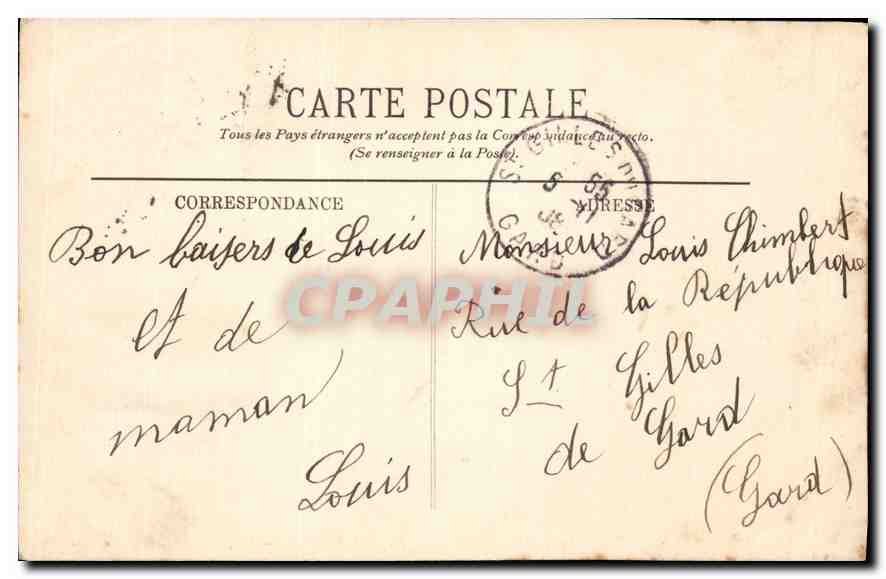 CARTE POSTALE
Tous les Pays étrangers n'acceptent pas la Correspondance au recto.
(Se renseigner à la Poste).
CORRESPONDANCE
Bon baisers de Louis
et de
maman
Louis
ADRESSE
Monsieur Louis Chimbert
Rue de la République
St Gilles
de Gard
(Gard)
ST GILLES DU GARD
GARD
CPAPHIL